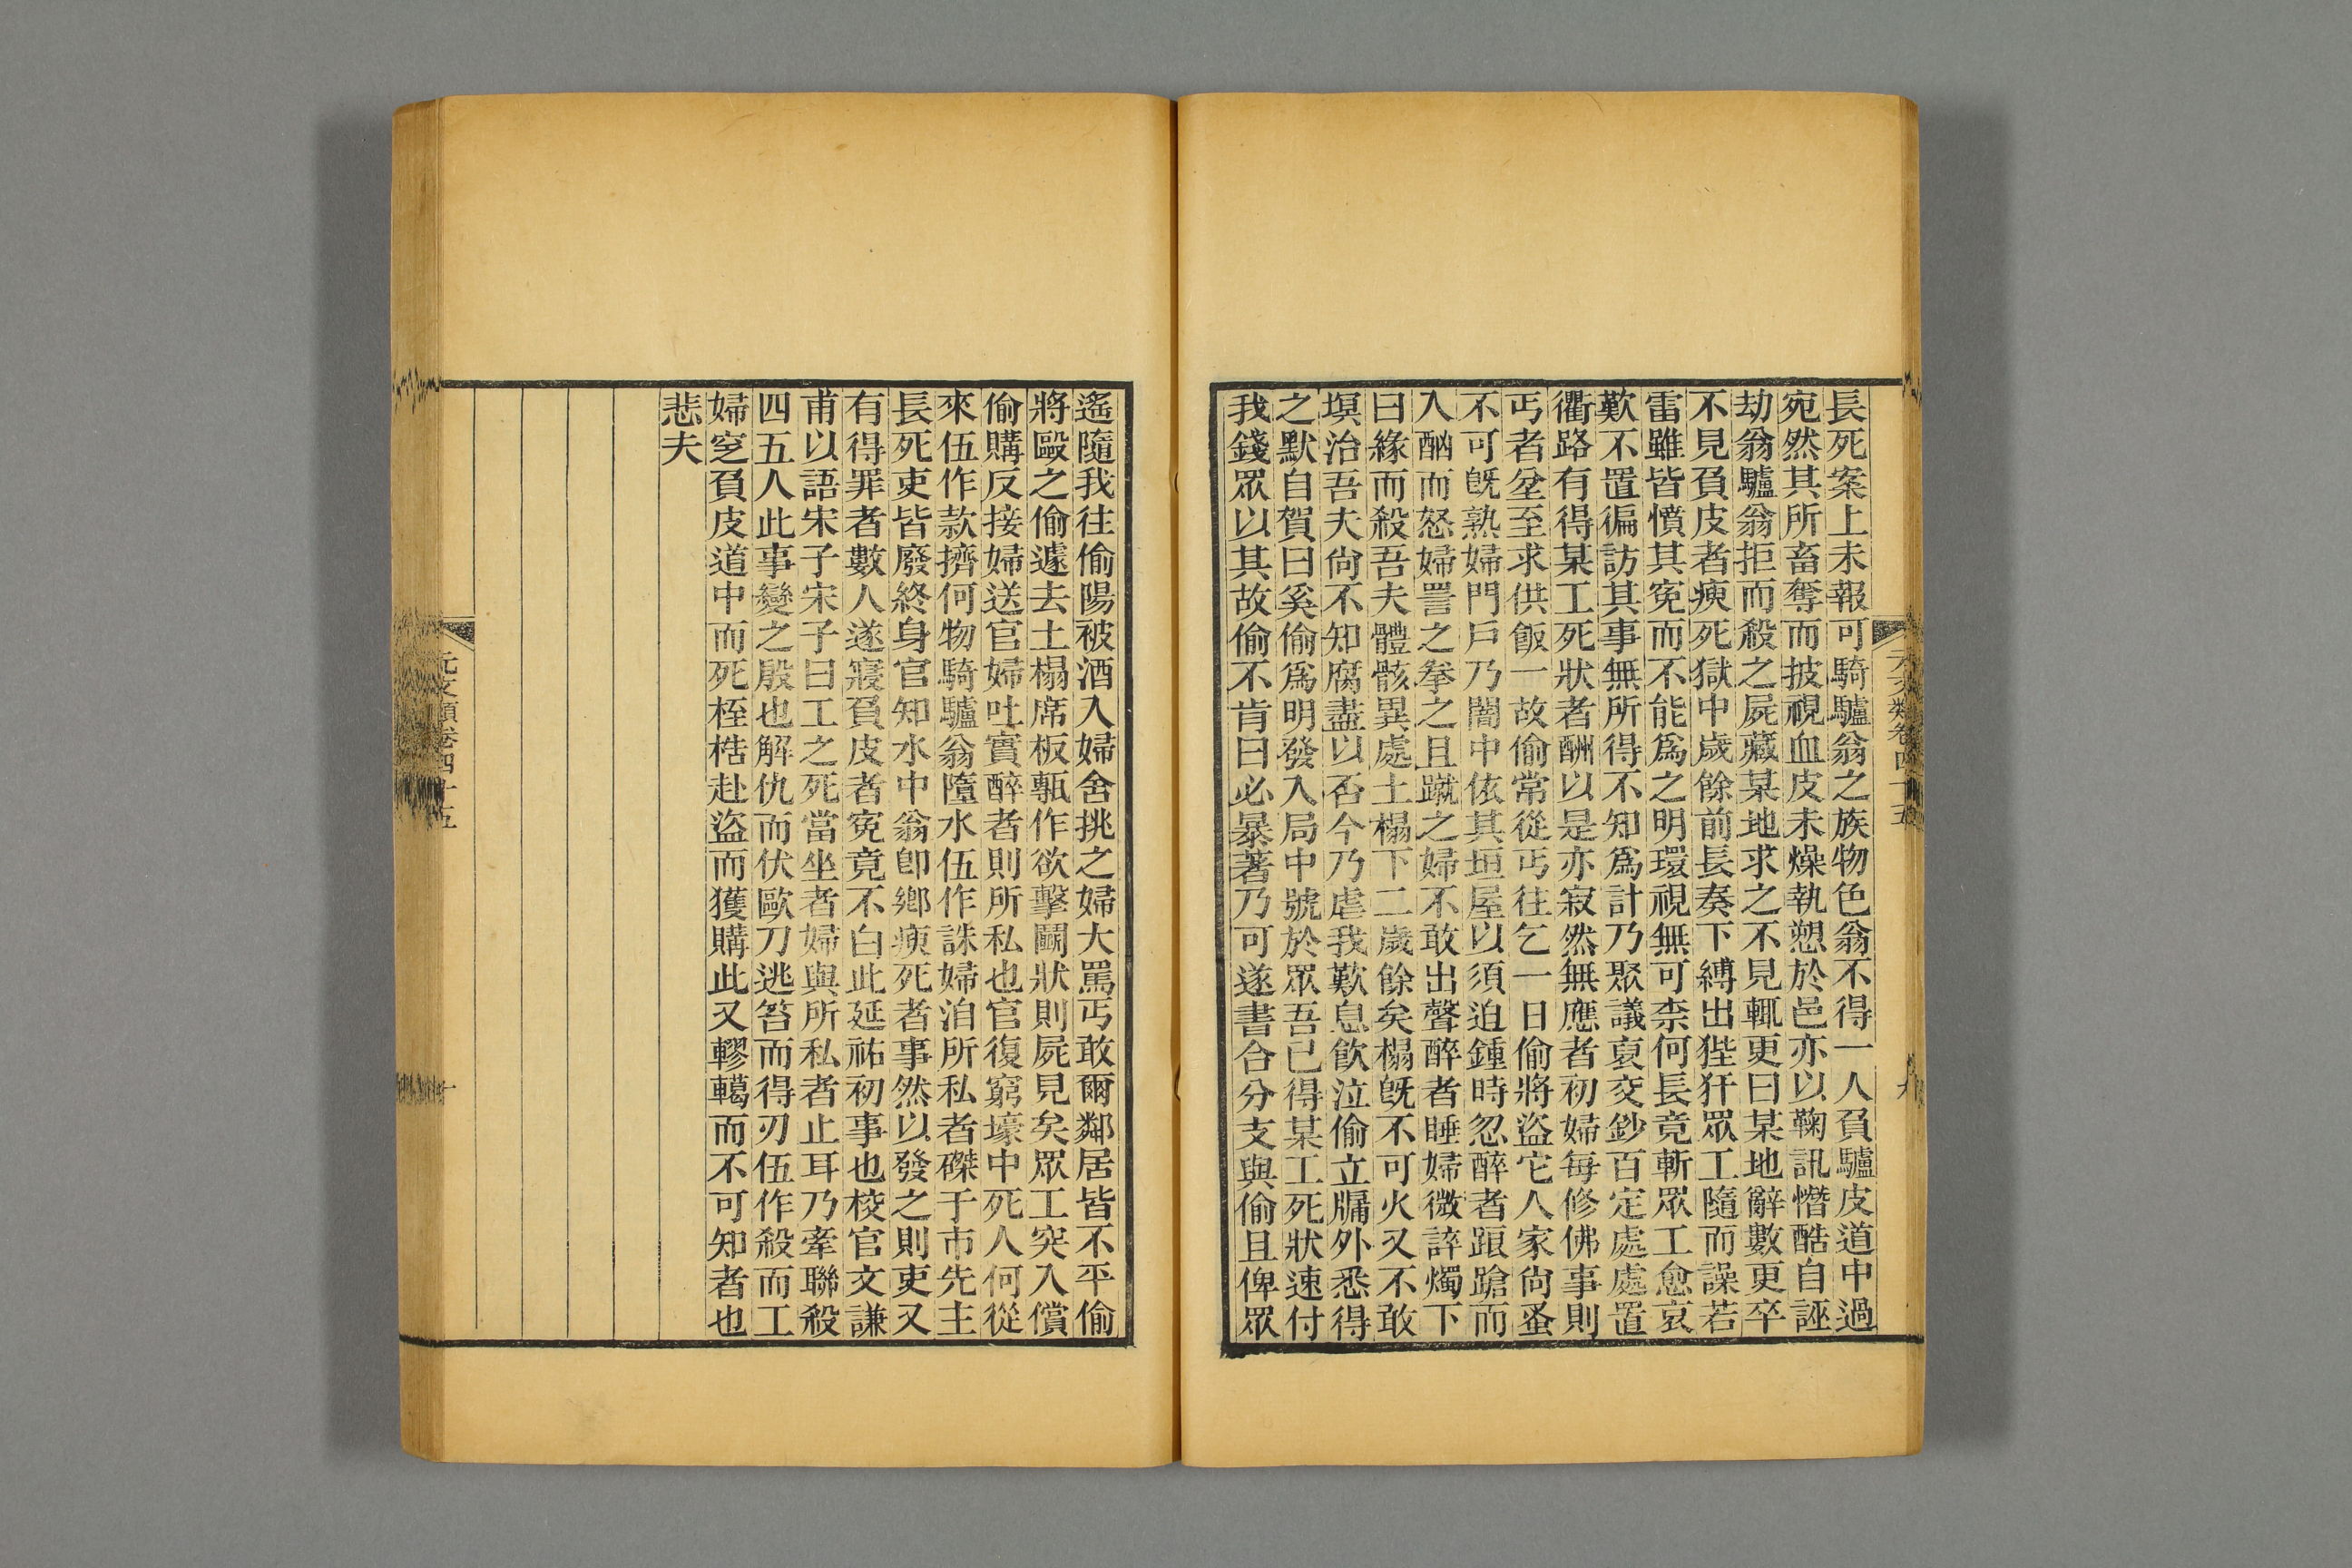 長死案上未報可騎驢翁之族物色翁不得一人負驢皮道中過
宛然其所畜奪而披視血皮未燥執愬於邑亦以鞠訊憯酷自誣
劫翁驢翁拒而殺之屍藏某地求之不見輒更曰某地辭數更卒
不見負皮者瘐死獄中歲餘前長奏下縛出狴犴眾工隨而譟若
雷雖皆憤其寃而不能爲之明環視無可柰何長竟斬眾工愈哀
歎不置徧訪其事無所得不知爲計乃聚議裒交鈔百定處處置
衢路有得某工死狀者酬以是亦寂然無應者初婦每修佛事則
丐者坌至求供飯一故偷常從丐往乞一日偷將盜它人家尙蚤
不可旣熟婦門戶乃闇中依其垣屋以須迫鍾時忽醉者踉蹌而
入酗而怒婦詈之拳之且蹴之婦不敢出聲醉者睡婦微誶燭下
曰緣而殺吾夫體骸異處土榻下二歲餘矣榻旣不可火又不敢
塓治吾夫尙不知腐盡以否今乃虐我歎息飮泣偷立牖外悉得
之默自賀曰奚偷爲明發入局中號於眾吾已得某工死狀速付
我錢眾以其故偷不肯曰必暴著乃可遂書合分支與偷且俾眾
遙隨我往偷陽被酒入婦舍挑之婦大罵丐敢爾鄰居皆不平偷
將毆之偷遽去土榻席板甎作欲擊鬬狀則屍見矣眾工突入償
偷購反接婦送官婦吐實醉者則所私也官復窮壕中死人何從
來伍作款擠何物騎驢翁墮水伍作誅婦洎所私者磔于市先主
長死吏皆廢終身官知水中翁卽鄉瘐死者事然以發之則吏又
有得罪者數人遂寢負皮者寃竟不白此延祐初事也校官文謙
甫以語宋子宋子曰工之死當坐者婦與所私者止耳乃牽聯殺
四五人此事變之殷也解仇而伏歐刀逃笞而得刃伍作殺而工
婦窆負皮道中而死桎梏赴盜而獲購此又轇轕而不可知者也
悲夫
元文類卷四十五